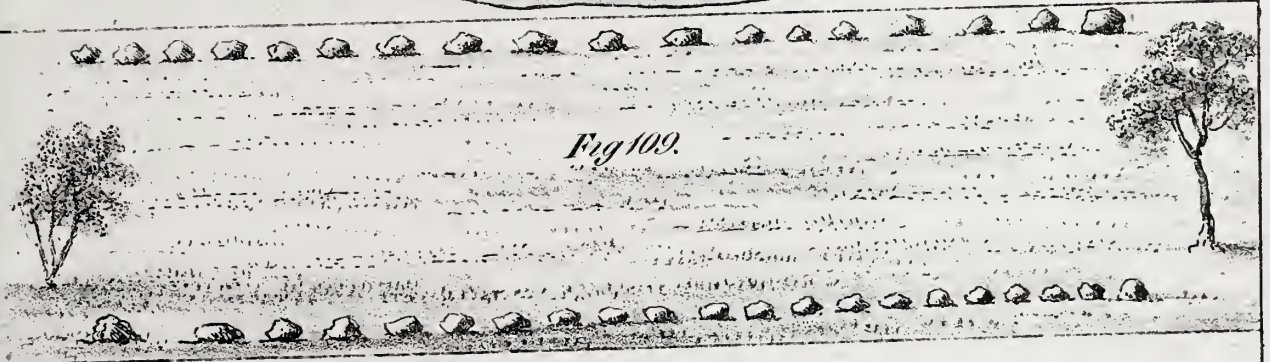 Fig 109.